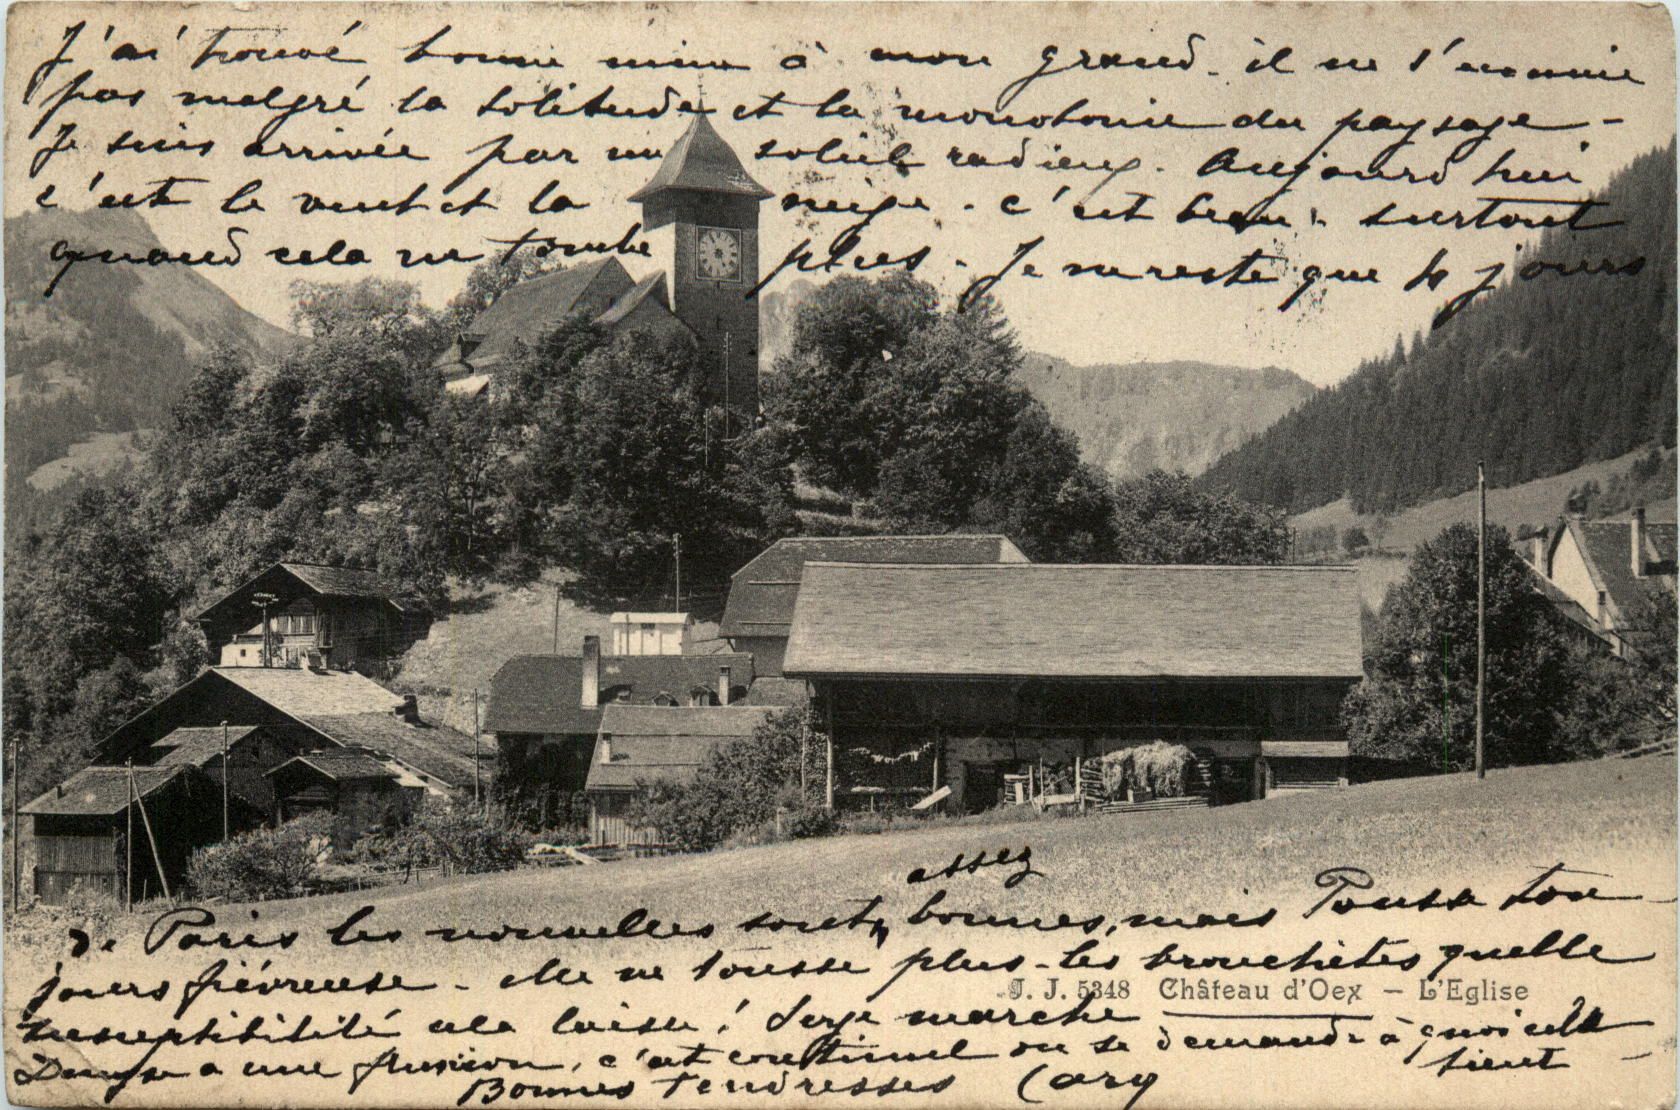 J'ai trouvé bonne mine à mon grand. il ne s'ennuie
pas malgré la solitude et la monotonie du paysage -
Je suis arrivée par un soleil radieux. Aujourd'hui
c'est le vent et la neige. c'est beau, surtout
quand cela ne tombe plus. Je ne reste que 4 jours
assez
De Paris les nouvelles sont bonnes, mais tou
jours fiévreuse. elle ne tousse plus. les bronchites quelle
susceptibilité cela laisse! Serge marche
J. J. 5348 Château d'Oex - L'Eglise
a une fluxion, c'est continuel on se demande à quoi cela
tient
Bonnes tendresses